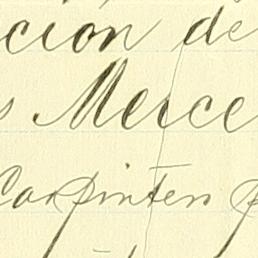 ción de
s Merce
Carpintero